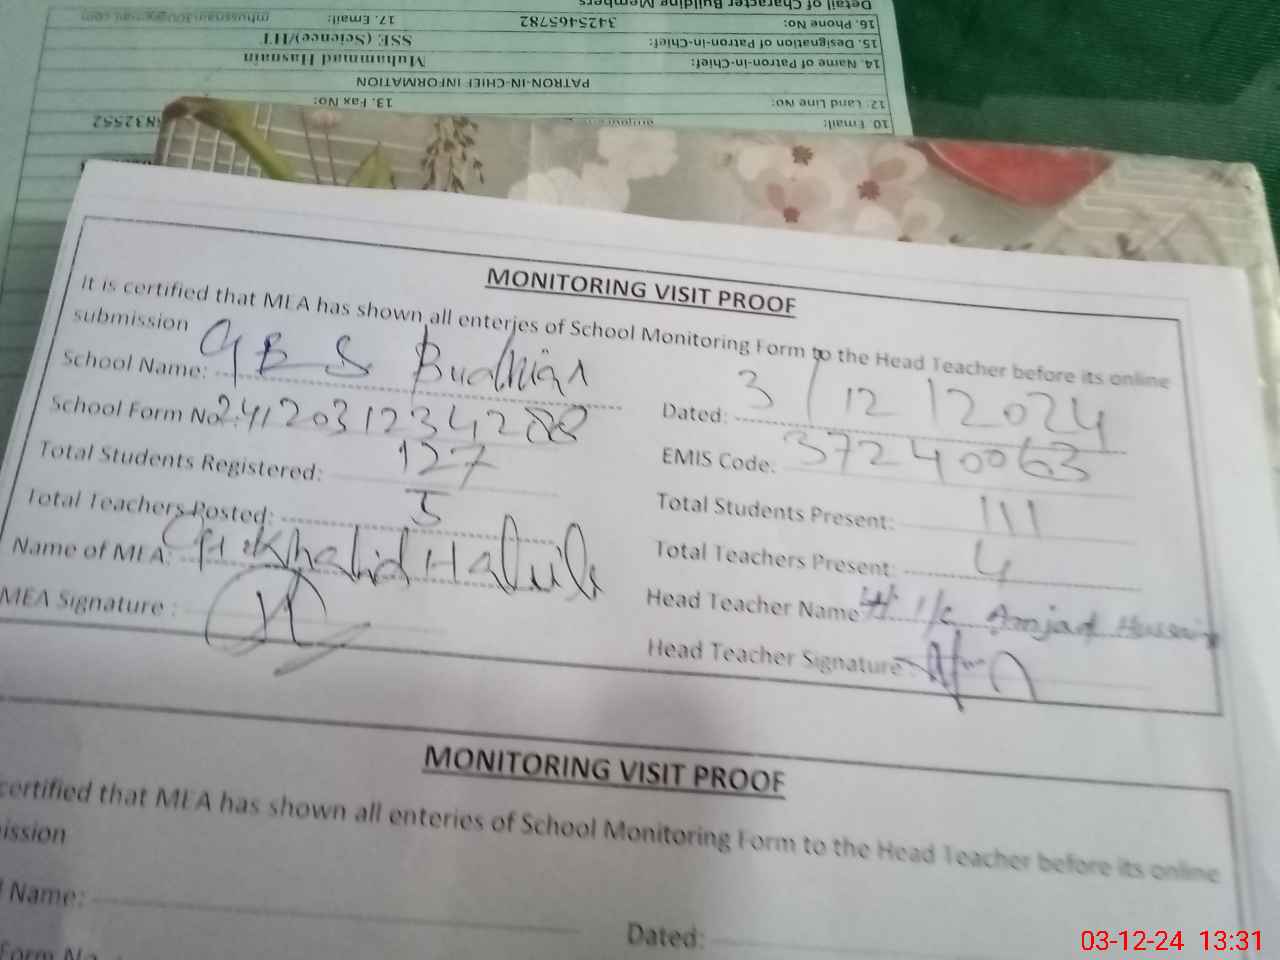 Detail of Character Building Members
16. Phone No: 3425465782 17. Email:
15. Designation of Patron-in-Chief: SSE (Science)/HT
14. Name of Patron-in-Chief: Muhammad Hasnain
PATRON-IN-CHIEF INFORMATION
12. Land Line No: 13. Fax No:
10. Email:
MONITORING VISIT PROOF
It is certified that MEA has shown all enteries of School Monitoring Form to the Head Teacher before its online
submission
School Name: GES Budhian Dated: 3/12/2024
School Form No. EMIS Code: 37240063
Total Students Registered: 127 Total Students Present: 111
Total Teachers Posted: 5 Total Teachers Present: 4
Name of MEA: Khalid Head Teacher Name I/C Amjad Hussain
MEA Signature : Head Teacher Signature :
MONITORING VISIT PROOF
certified that MEA has shown all enteries of School Monitoring Form to the Head Teacher before its online
ission
Name: Dated:
Form No
03-12-24 13:31